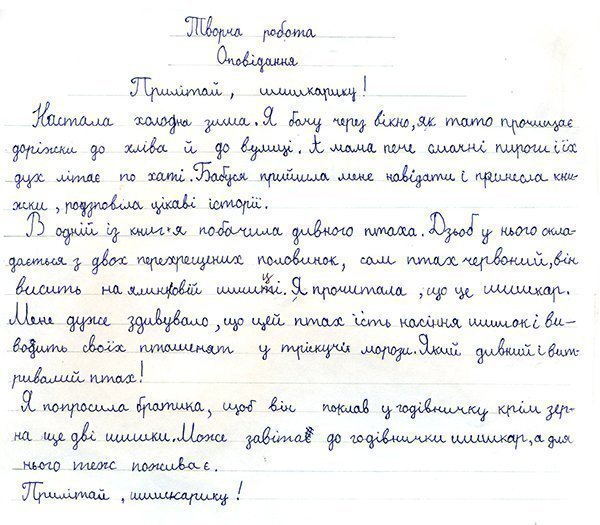 Творча робота
Оповідання
Прилітай, шишкарику!
Настала холодна зима. Я бачу через вікно, як тато прочищає
доріжки до хліва й до вулиці. А мама пече смачні пироги і їх
дух літає по хаті. Бабуся прийшла мене навідати і принесла кни-
жки, розповіла цікаві історії.
В одній із книг я побачила дивного птаха. Дзьоб у нього скла-
дається з двох перехрещених половинок, сам птах червоний, він
висить на ялинковій шишці. Я прочитала, що це шишкар.
Мене дуже здивувало, що цей птах їсть насіння шишок і ви-
водить своїх пташенят у тріскучі морози. Який дивний і вит-
ривалий птах!
Я попросила братика, щоб він поклав у годівничку крім зер-
на ще дві шишки. Може завітає до годівнички шишкар, а для
нього теж пожива є.
Прилітай, шишкарику!